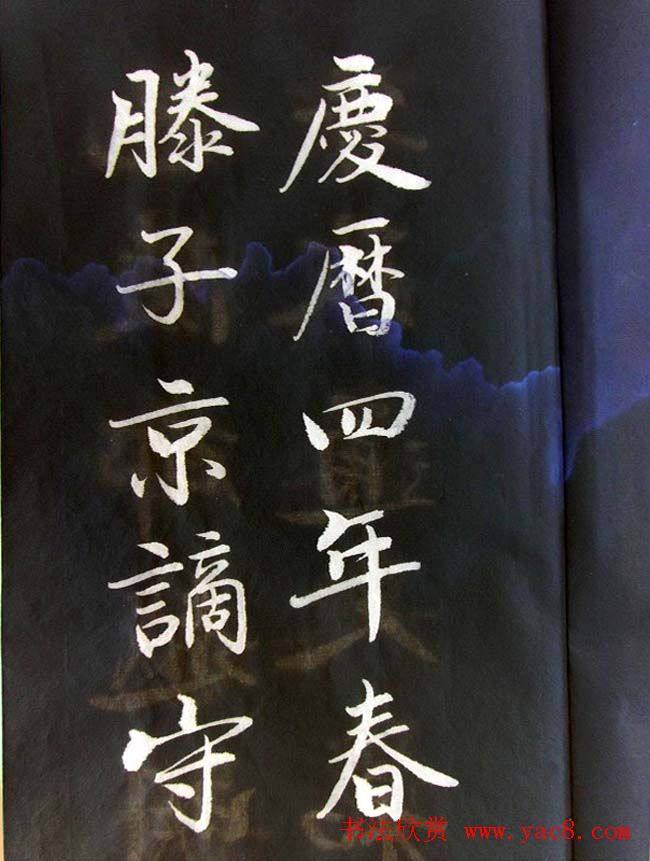 慶曆四年春
滕子京謫守
书法欣赏 www.yac8.com